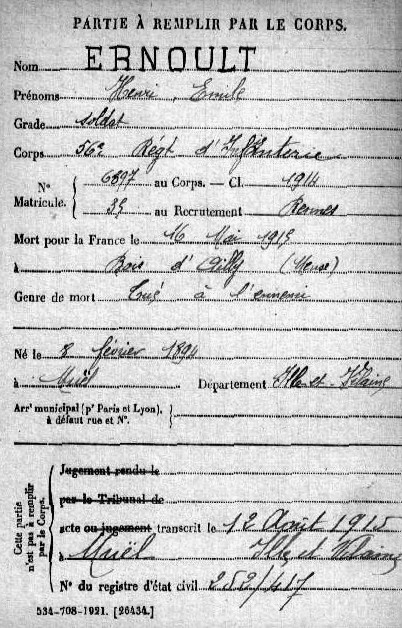 PARTIE À REMPLIR PAR LE CORPS.
Nom ERNOULT
Prénoms Henri, Emile
Grade soldat
Corps 56e Régt d'Infanterie
N° Matricule. 6897 au Corps. — Cl. 1914
39 au Recrutement Rennes
Mort pour la France le 16 Mai 1915
à Bois d'Ailly (Meuse)
Genre de mort Tué à l'ennemi
Né le 8 février 1894
à Muël Département Ille-et-Vilaine
Arr' municipal (p' Paris et Lyon), à défaut rue et N°.
Cette partie n'est pas à remplir par le Corps.
Jugement rendu le
par le Tribunal de
acte ou jugement transcrit le 12 Août 1915
à Muël Ille et Vilaine
N° du registre d'état civil 252/417
534-708-1921. [26434.]